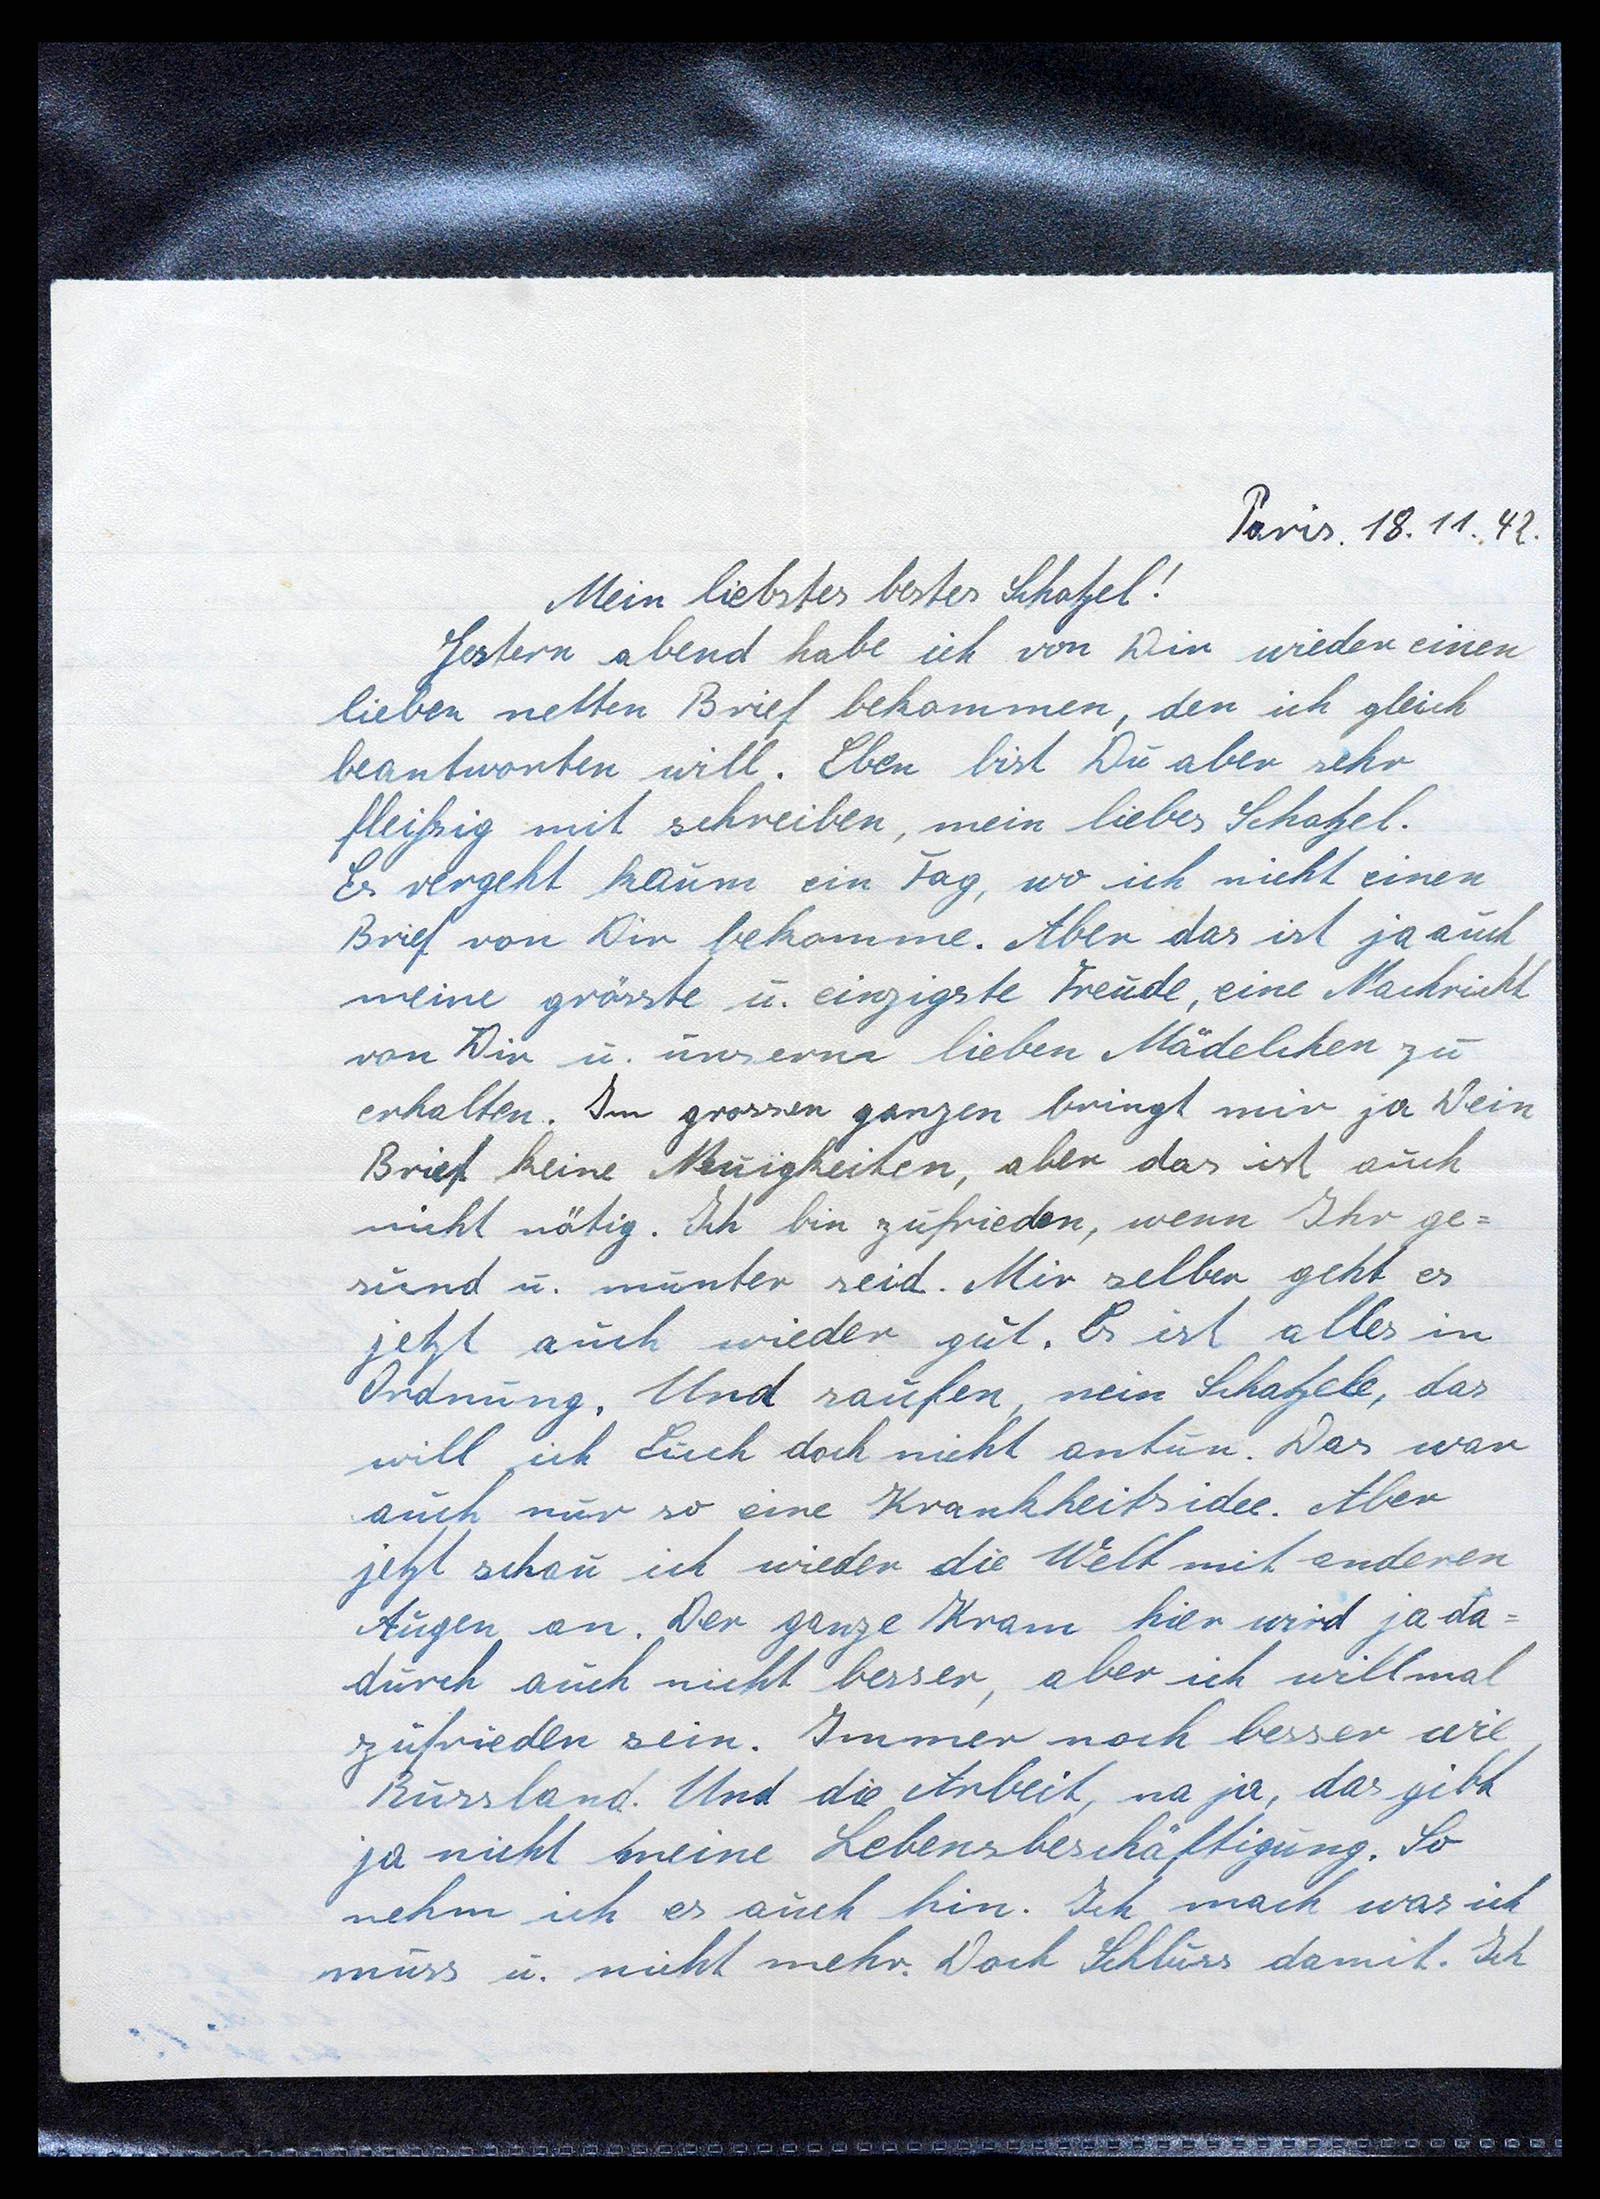 Paris. 18.11.42.
Mein liebstes bestes Schatzel!
Gestern abend habe ich von Dir wieder einen
lieben netten Brief bekommen, den ich gleich
beantworten will. Eben bist Du aber sehr
fleißig mit schreiben, mein liebes Schatzel.
Es vergeht kaum ein Tag, wo ich nicht einen
Brief von Dir bekomme. Aber das ist ja auch
meine grösste u. einzigste Freude, eine Nachricht
von Dir u. unserm lieben Mädelchen zu
erhalten. Im grossen ganzen bringt mir ja Dein
Brief keine Neuigkeiten, aber das ist auch
nicht nötig. Ich bin zufrieden, wenn Ihr ge=
sund u. munter seid. Mir selber geht es
jetzt auch wieder gut. Es ist alles in
Ordnung. Und saufen, nein Schatzele, das
will ich Euch doch nicht antun. Das war
auch nur so eine Krankheitsidee. Aber
jetzt schau ich wieder die Welt mit anderen
Augen an. Der ganze Kram hier wird ja da=
durch auch nicht besser, aber ich will mal
zufrieden sein. Immer noch besser wie
Russland. Und die Arbeit, na ja, das gibt
ja nicht meine Lebensbeschäftigung. So
nehm ich es auch hin. Ich mach was ich
muss u. nicht mehr. Doch Schluss damit. Ich